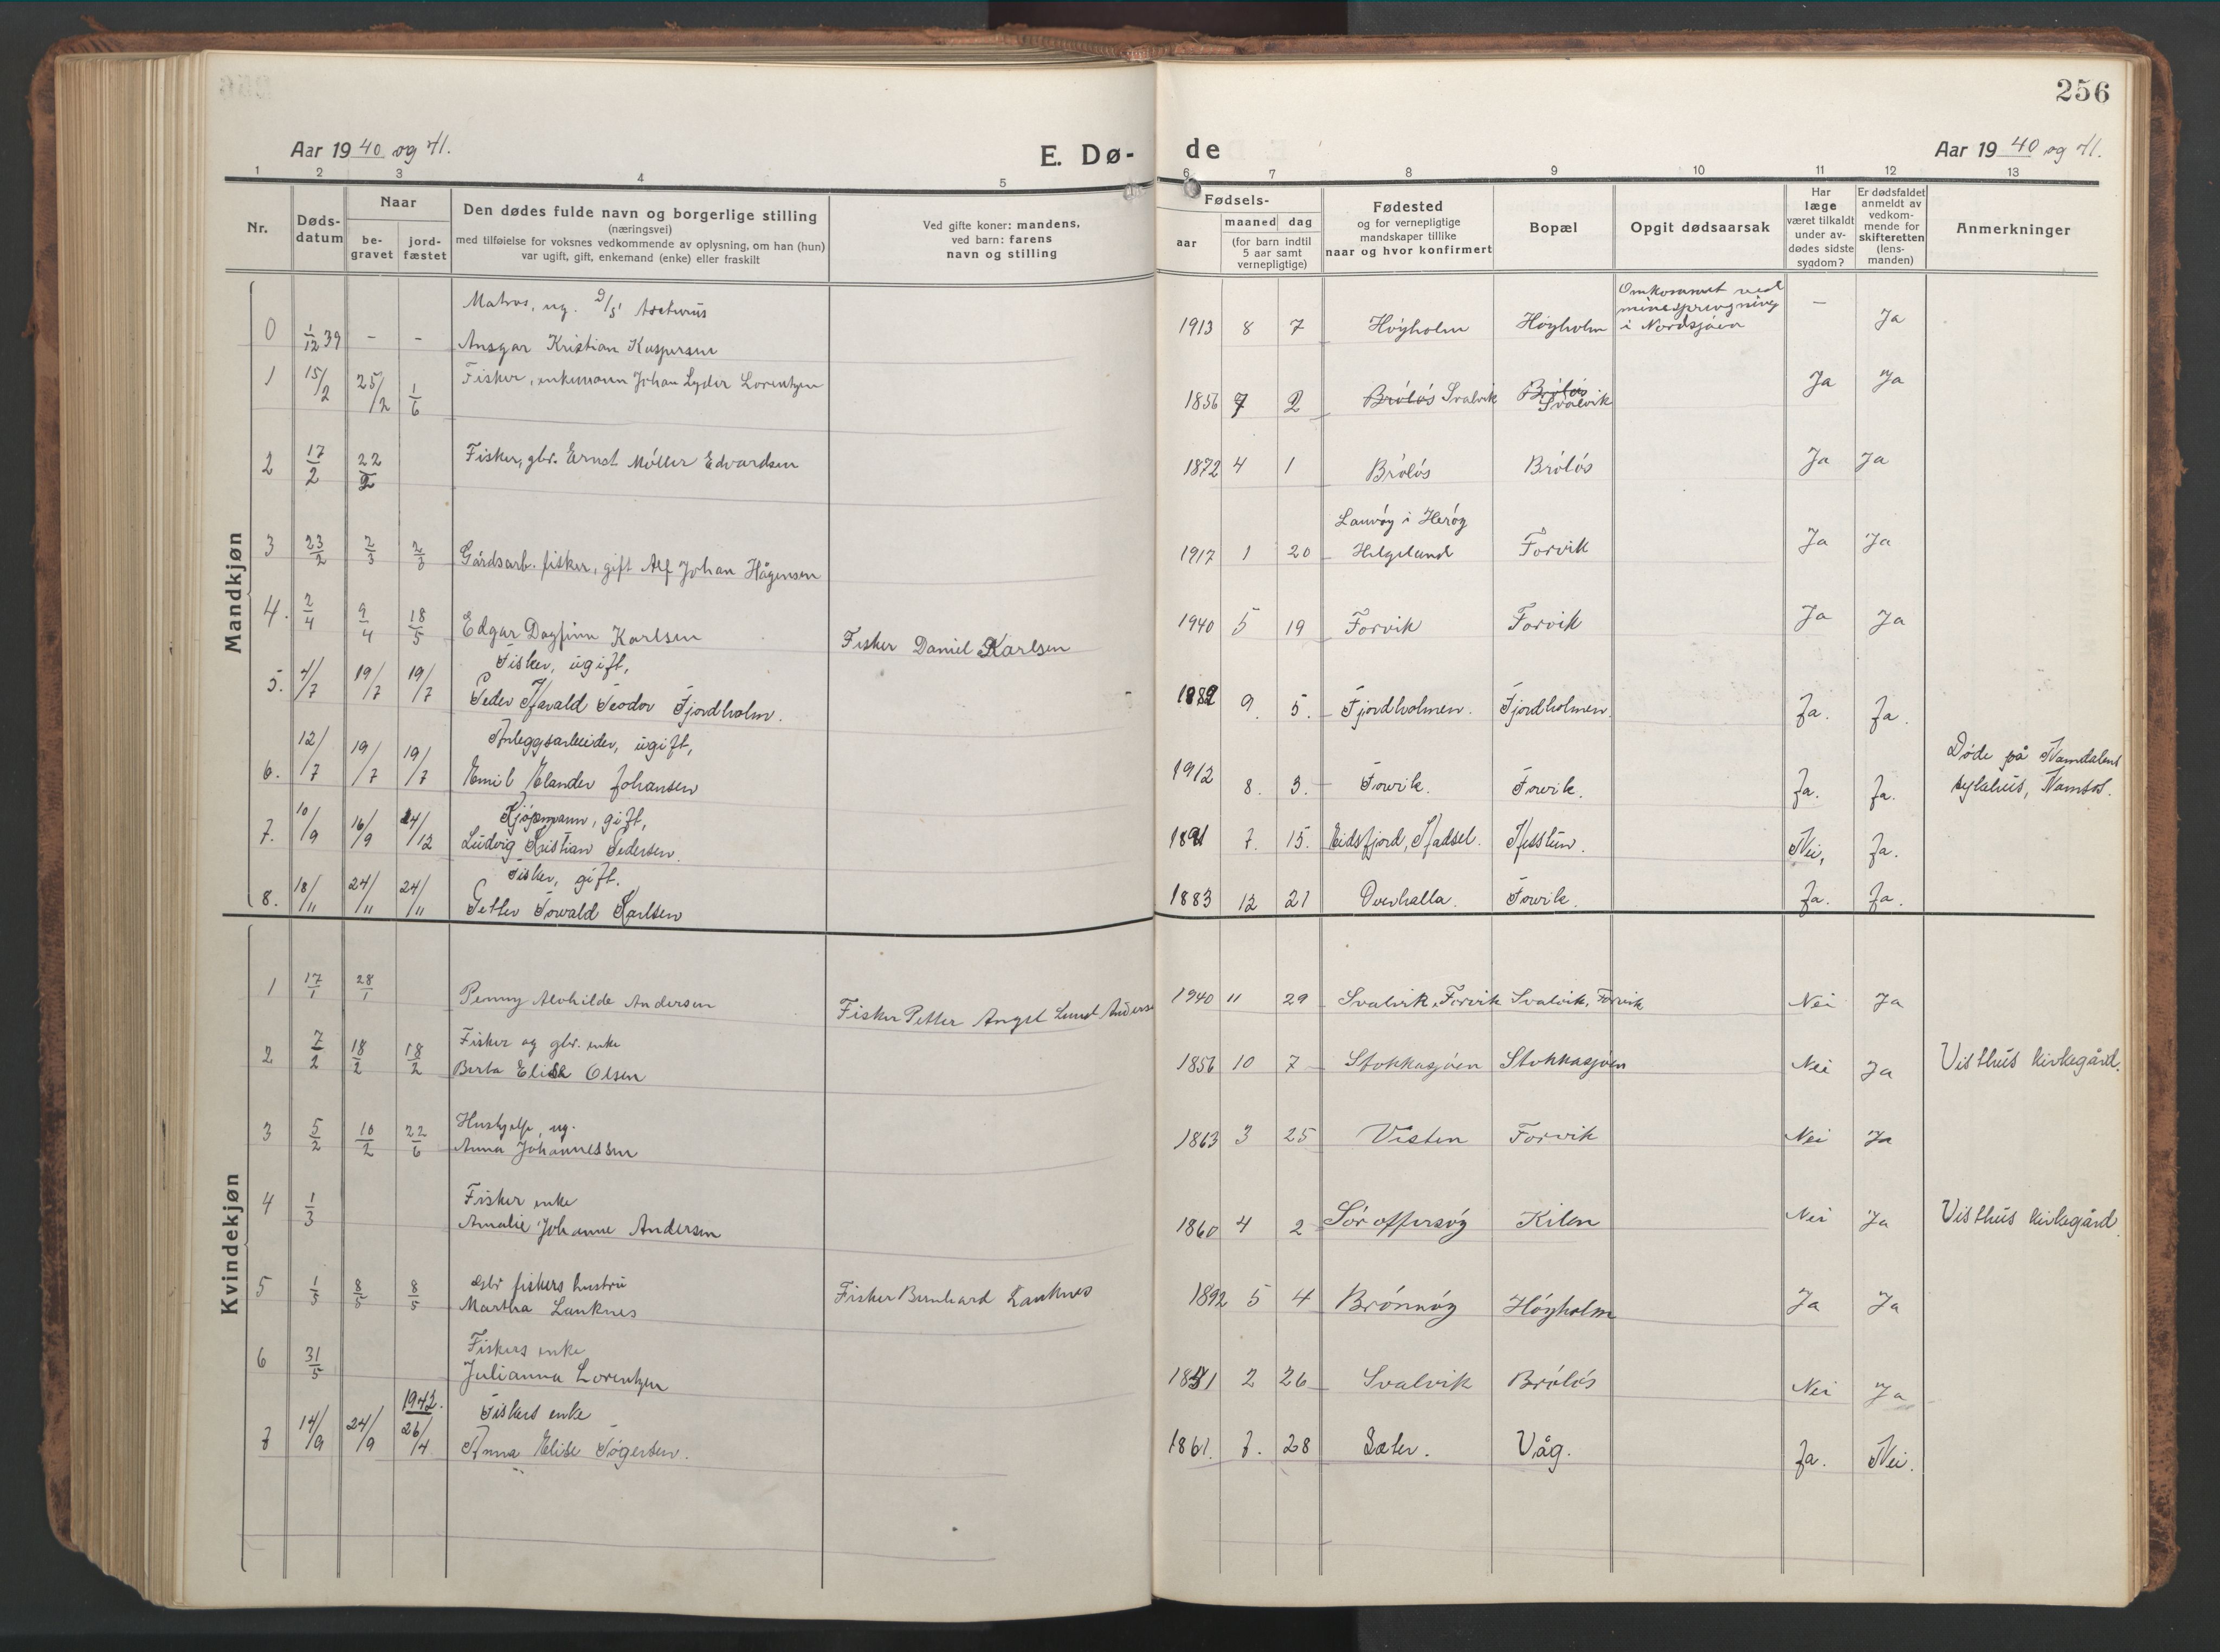 256
Aar 1940 og 41.
E. Dø-
de
Aar 1940 og 41.
1 2 3 4 5 6 7 8 9 10 11 12 13
Nr.
Døds-
datum
Naar
be-
gravet
jord-
fæstet
Den dødes fulde navn og borgerlige stilling
(næringsvei)
med tilføielse for voksnes vedkommende av oplysning, om han (hun)
var ugift, gift, enkemand (enke) eller fraskilt
Ved gifte koner: mandens,
ved barn: farens
navn og stilling
Fødsels-
aar
maaned dag
(for barn indtil
5 aar samt
vernepligtige)
Fødested
og for vernepligtige
mandskaper tillike
naar og hvor konfirmert
Bopæl
Opgit dødsaarsak
Har
læge
været tilkaldt
under av-
dødes sidste
sygdom?
Er dødsfaldet
anmeldt av
vedkom-
mende for
skifteretten
(lens-
manden)
Anmerkninger
Mandkjøn
Matros, ug. D/S Arcturus
Omkommet ved
minesprengning
i Nordsjøen
0 1/12 39 - - Ansgar Kristian Kaspersen 1913 8 7 Høyholm Høyholm — Ja
1 15/2 25/2 1/6 Fisker, enkemann Johan Lyder Lorentzen 1856 7 2 Brøløs Svalvik Brøløs Svalvik Ja Ja
2 17/2 22/2 Fisker, gbr. Ernst Møller Edvardsen 1872 4 1 Brøløs Brøløs Ja Ja
Lauvøy i Herøy
3 23/2 2/3 2/3 Gårdsarb. fisker, gift Alf Johan Hågensen 1917 1 20 Helgeland Forvik Ja Ja
4. 2/4 9/4 18/5 Edgar Dagfinn Karlsen Fisker Daniel Karlsen 1940 5 19 Forvik Forvik Ja Ja
Fisker, ugift,
5. 4/7 19/7 19/7 Peder Harald Teodor Fjordholm. 1882 9. 5. Fjordholmen. Fjordholmen. Ja. Ja.
Anleggsarbeider, ugift,
6. 12/7 19/7 19/7 Emil Elander Johansen 1912 8. 3. Forvik. Forvik. Ja. Ja. Døde på Namdalens
sykehus, Namsos.
Kjøpmann, gift,
7. 10/9 16/9 24/12 Ludvig Kristian Pedersen. 1891 7. 15. Eidsfjord, Hadsel. Hesstun. Nei, Ja.
Fisker, gift.
8. 18/11 24/11 24/11 Petter Torvald Karlsen 1883 12 21 Overhalla. Forvik. Ja. Ja.
Kvindekjøn
1 17/1 28/1 Penny Alvhilde Andersen Fisker Petter Angel Lund Anderse 1940 11 29 Svalvik, Forvik Svalvik, Forvik Nei Ja
Fisker og gbr. enke
2 7/2 18/2 18/2 Berta Elise Olsen 1856 10 7 Stokkasjøen Stokkasjøen Nei Ja Visthus kirkegård.
Hushjelp, ug.
3 5/2 10/2 22/6 Anna Johannessen 1863 3 25 Visten Forvik Nei Ja
Fisker enke
4 1/3 Amalie Johanne Andersen 1860 4 2 Sør offersøy Kilen Nei Ja Visthus kirkegård.
Gbr fiskers hustru
5 1/5 8/5 8/5 Martha Lauknes Fisker Bernhard Lauknes 1892 5 4 Brønnøy Høyholm Ja Ja
Fiskers enke
6 31/5 Julianna Lorentzen 1851 2 26 Svalvik Brøløs Nei Ja
1942. Fiskers enke
7 14/9 24/9 26/4. Anna Elise Tøgersen. 1861. 7. 28 Sæter. Våg. Ja. Nei.